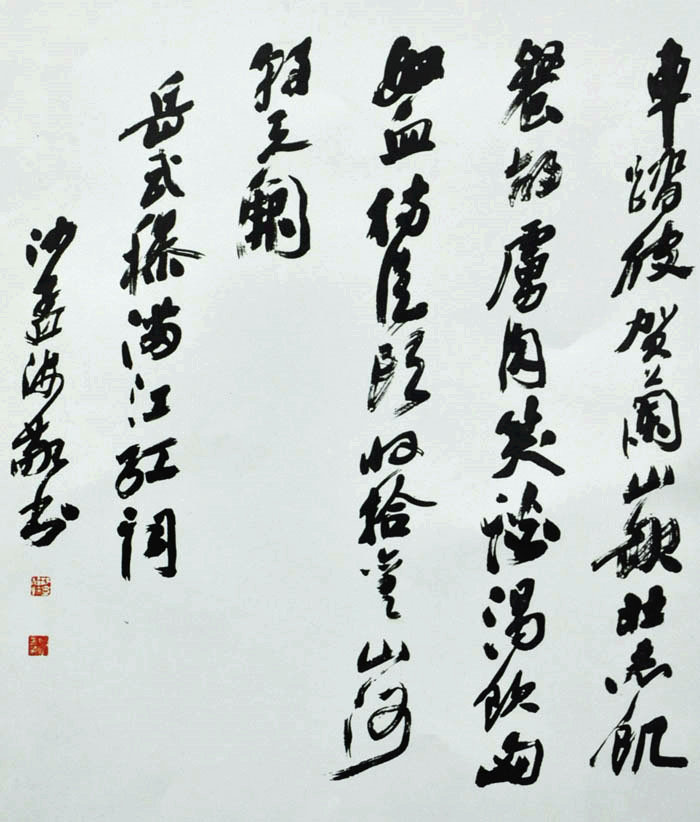 車踏破賀蘭山缺壯志飢
餐胡虜肉笑談渴飲匈
奴血待從頭收拾舊山河
朝天闕
岳武穆滿江紅詞
沙孟海敬書